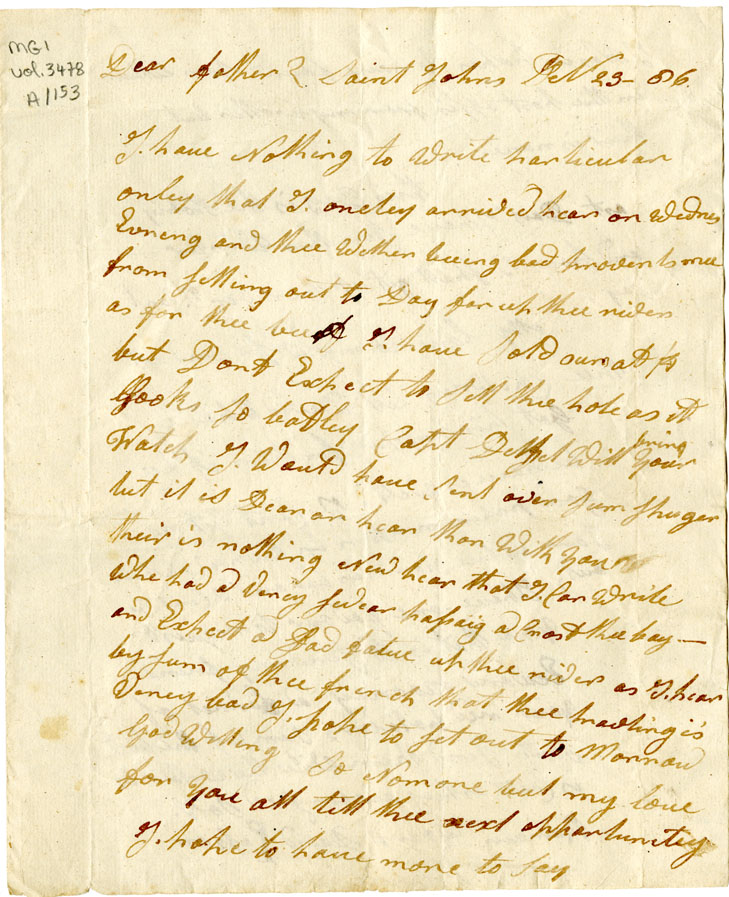 MG1
vol.3478
A/153
Dear father Saint Johns Feb 23 - 86
I have Nothing to write particular
onley that I oneley arrived hear on Wednes
Evneng and thee Wether beeing bad provents mee
from setting out to Day for up thee rider
as for thee beef I have Sold sum at
but Dont Expect to Sell thee hole as it
Looks So badley Capt Will bring your
Watch I Would have Sent over Sum Shuger
but it is Dearar hear than With you
their is nothing New hear that I Can Write
Whe had a Verrey sevear passaig a Crost thee bay —
and Expect a Bad fatue up thee rider as I hear
by sum of thee french that thee travling is
Verrey bad I hope to Set out to Morrow
God Willing So Nomore but my love
for you all till thee next opportunitey
I hope to have more to Say